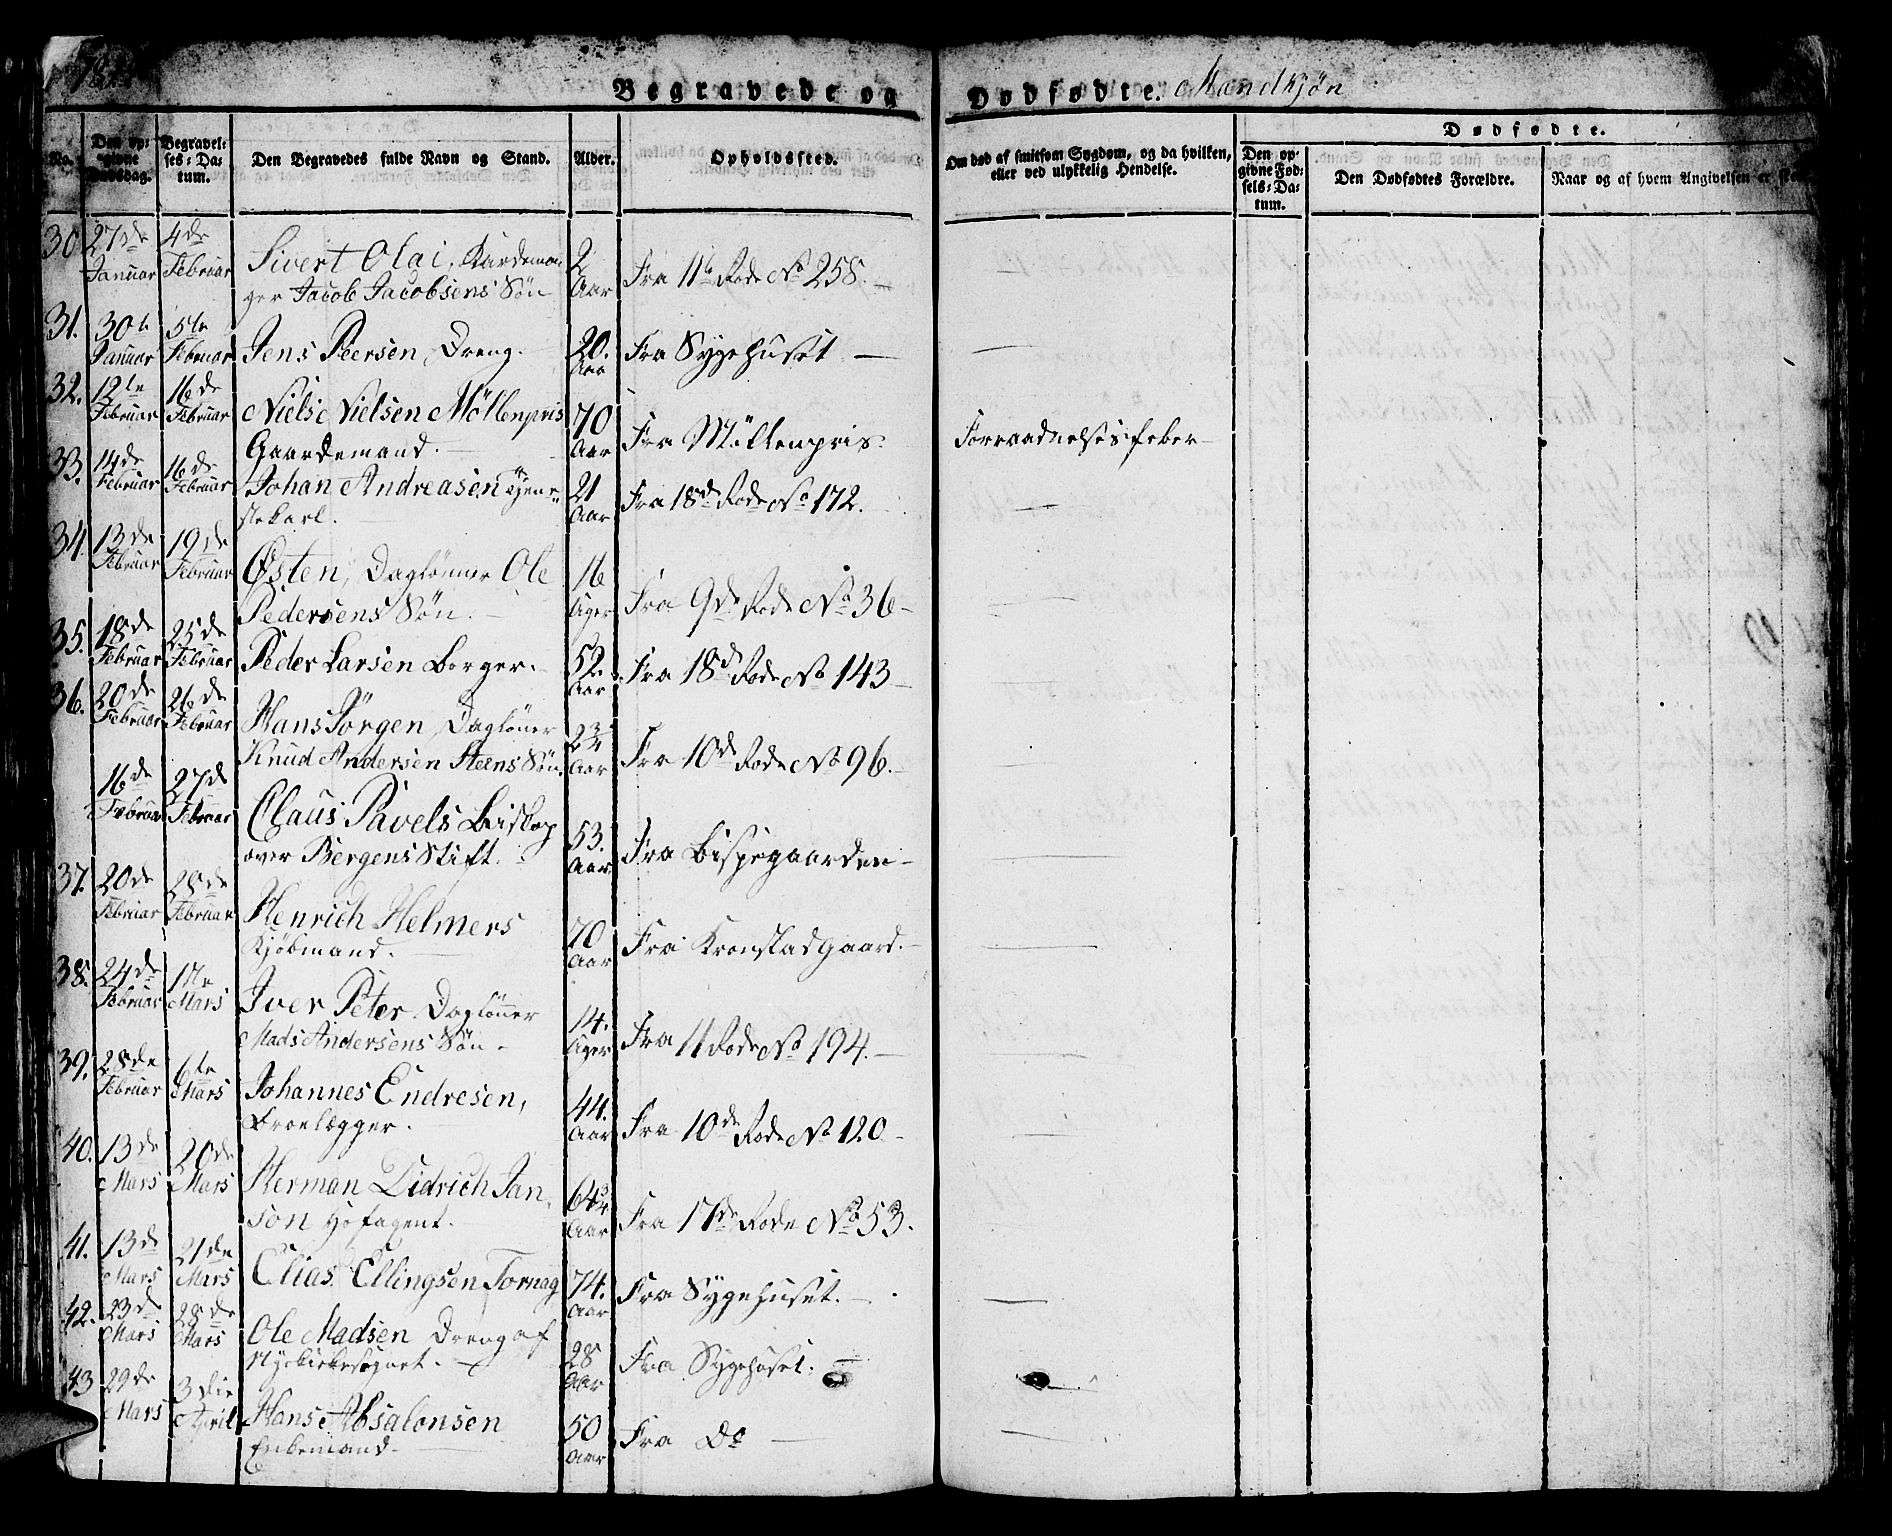 Begravede og Dødfødte. Mandkjøn
No. Den opgivne Dødsdag. Begravelses-Datum. Den Begravedes fulde Navn og Stand. Alder. Opholdssted. Om død af smitsom Sygdom, og da hvilken, eller ved ulykkelig Hendelse. Dødfødte.
Den opgivne Fødsels-Datum. Den Dødfødtes Forældre. Naar og af hvem Angivelsen er
30 27de Januar 4de Februar Sivert Olai,
ger Jacob Jacobsens Søn 2 Aar Fra 11te Rode No 258. —
31. 30te Januar 5te Februar Jens Peersen, Dreng. 20. Aar Fra Sygehuset — —
32. 12te Februar 16de Februar Niels Nielsen Möllenpris
Gaardemand. — 70 Aar Fra Möllenpris. Forraadnelsesfeber —
33. 14de Februar 16de Februar Johan Andreasen Tjene-
stekarl. 21 Aar Fra 18de Rode No 172. —
34. 13de Februar 19de Februar Østen, Daglönner Ole
Pedersens Søn. — 16 Uger Fra 9de Rode No 36 — —
35. 18de Februar 25de Februar Peder Larsen Borger. 52. Aar Fra 18de Rode No 143 — —
36. 20de Februar 26de Februar Hans Jörgen, Daglöner
Knud Andersen Steens Søn. 2 3/4 Aar Fra 10de Rode No 96. — —
16de Februar 27de Februar Claus Pavels Biskop
over Bergens Stift. 53. Aar Fra Bispegaarden — —
37. 20de Februar 28de Februar Henrich Helmers
Kjöbmand. — 70 Aar Fra Kronstadgaard. — —
38. 24de Februar 1ste Mars Iver Peter, Daglönner
Mads Andersens Søn — 14. Uger Fra 11 Rode No 194. — —
39. 28de Februar 6te Mars Johannes Endresen,
Broelægger. 44. Aar Fra 10de Rode No 120 — —
40. 13de Mars 20de Mars Herman Didrich Jan-
son Hofagent. 64 3/4 Aar Fra 17de Rode No 53.
41. 13de Mars 21de Mars Elias Ellingsen Fornag 74. Aar Fra Sygehuset. — —
42. 23de Mars 28de Mars Ole Madsen Dreng af
Nyekirkesognet. — 28 Aar Fra Sygehuset. —
43 29de Mars 3die April Hans Absalonsen
Enkemand — 50 Aar Fra Do — —